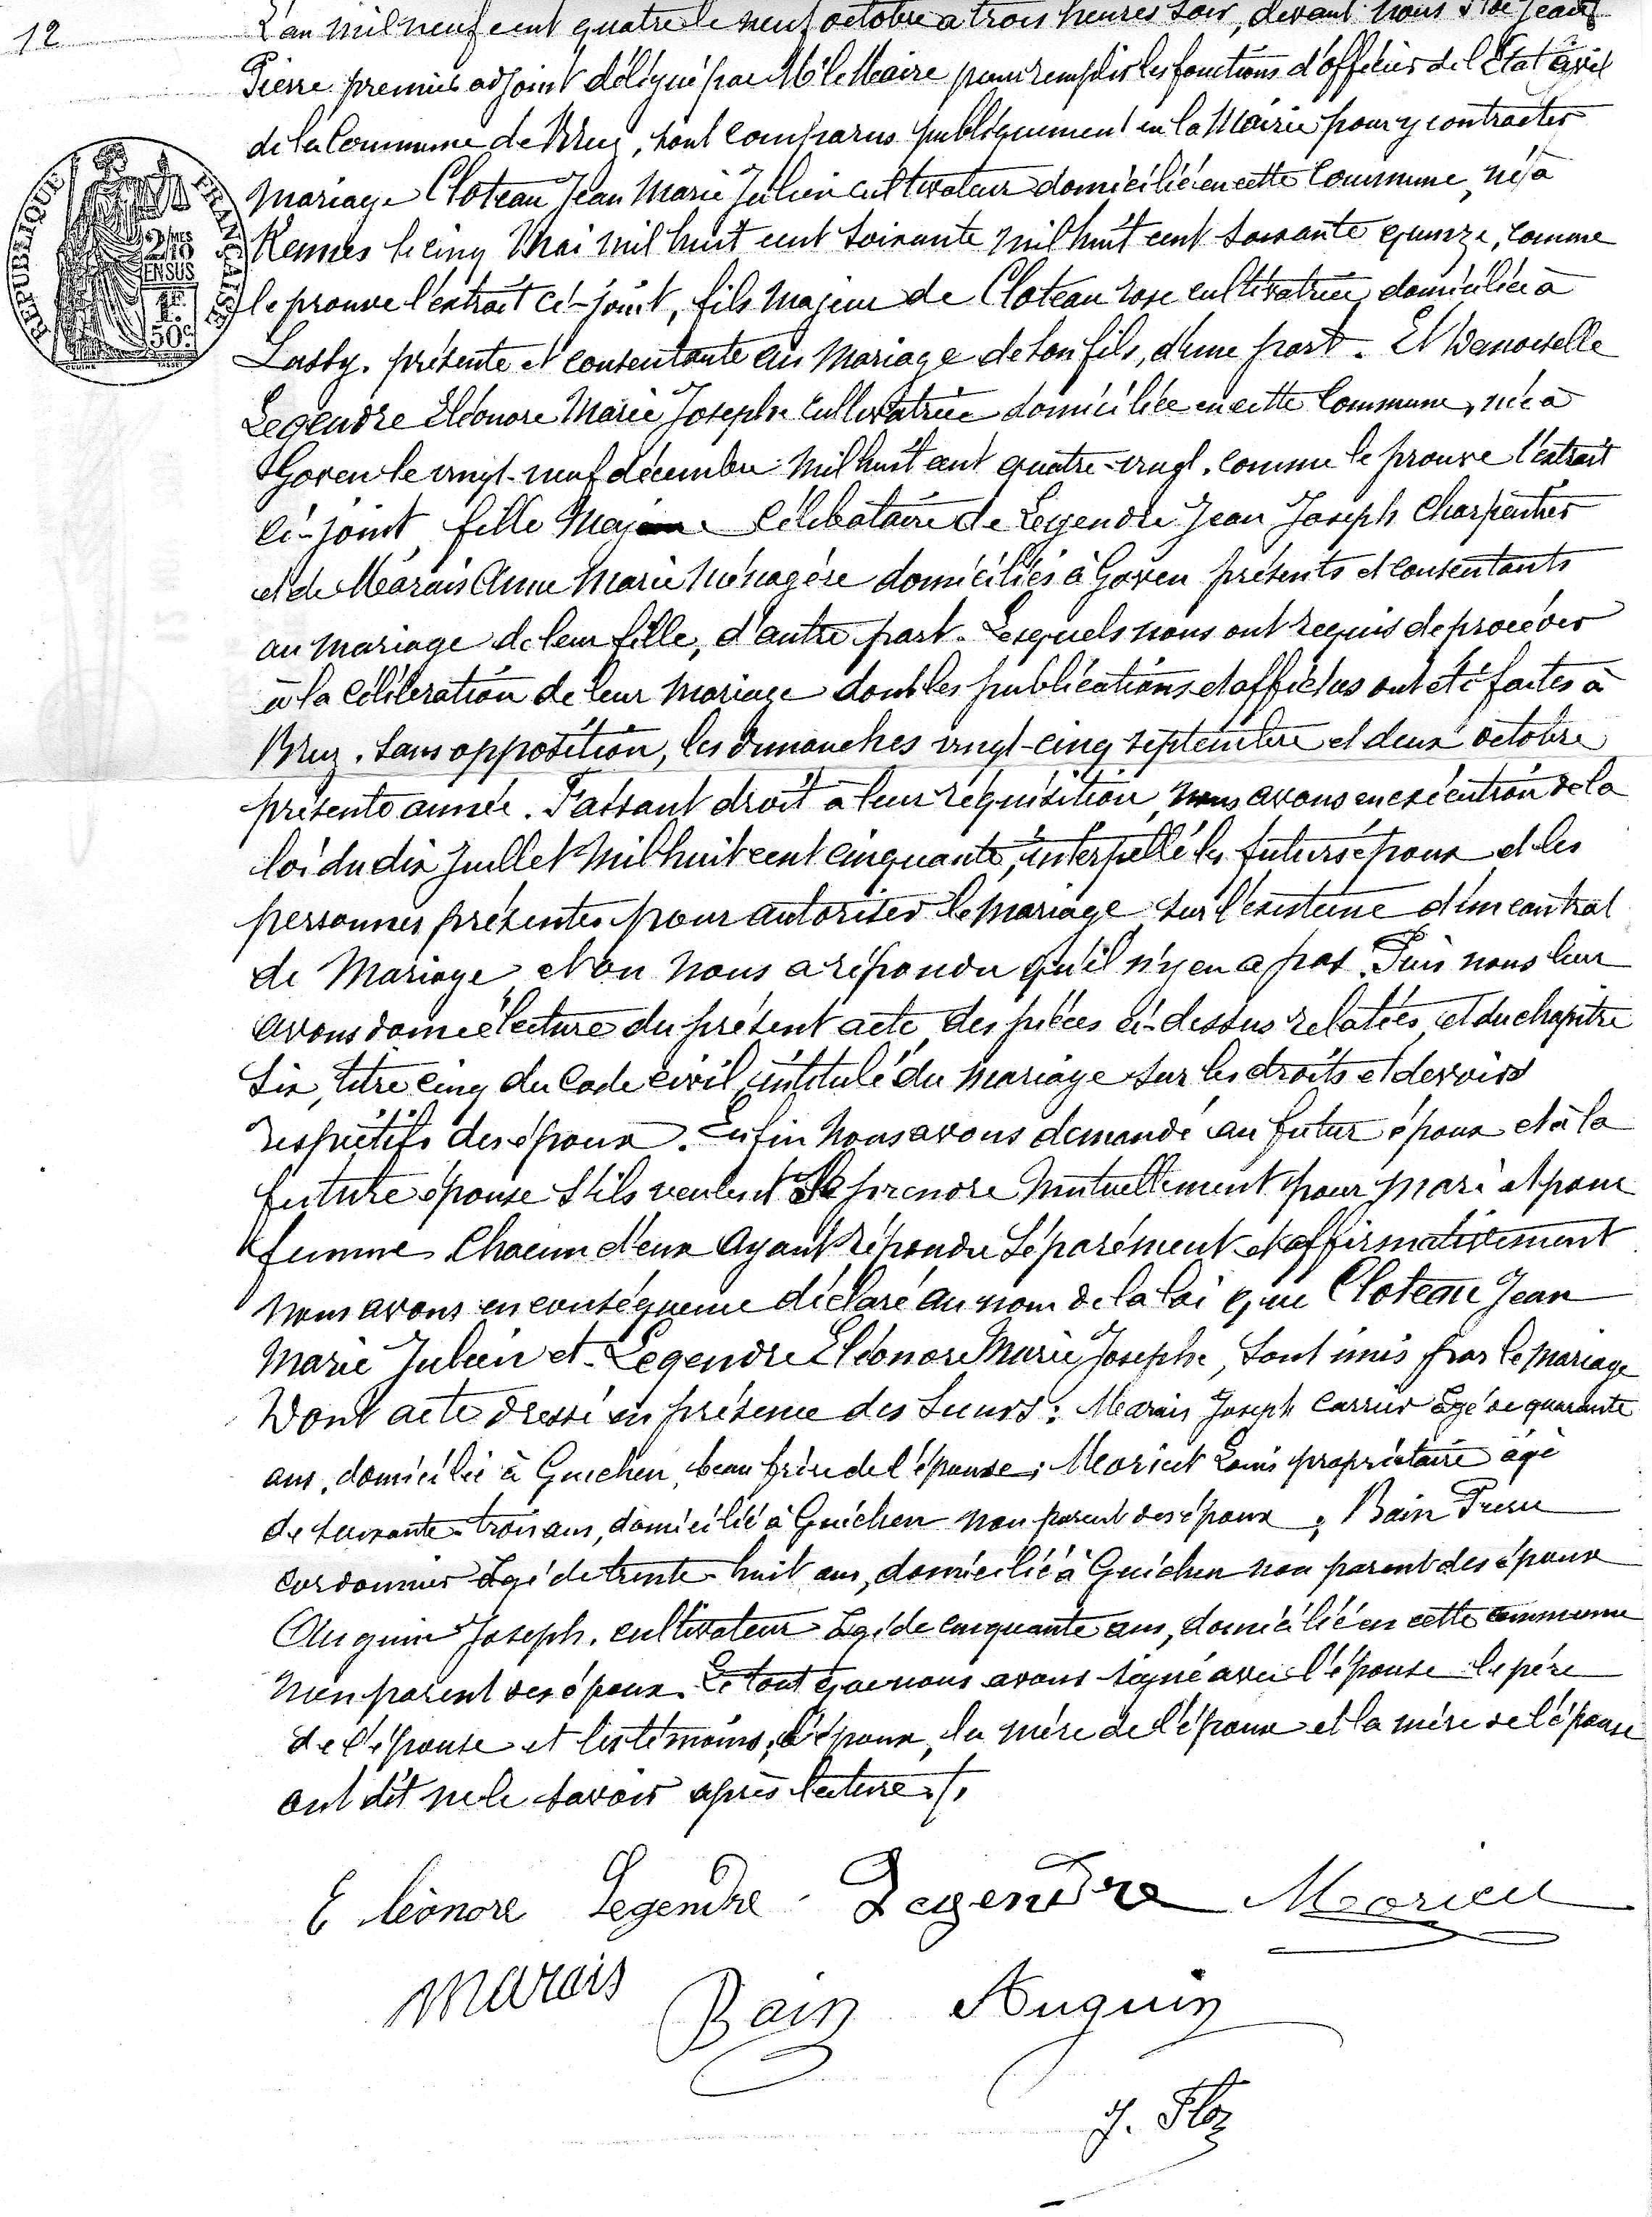 12
L'an mil neuf cent quatre le neuf octobre à trois heures soir, devant nous Jean
Pierre premier adjoint délégué par Mr le Maire pour remplir les fonctions d'officier de l'Etat Civil
de la Commune de Bruz, sont comparus publiquement en la Mairie pour y contracter
mariage Cloteau Jean Marie Julien cultivateur domicilié en cette Commune, né à
Rennes le cinq Mai mil huit cent soixante mil huit cent soixante quinze, comme
le prouve l'extrait ci-joint, fils majeur de Cloteau rose cultivatrice, domiciliée à
Lassy. présente et consentante au Mariage de son fils, d'une part. Et Demoiselle
Legendre Eléonore Marie Josephe cultivatrice domiciliée en cette Commune, née à
Goven le vingt-neuf décembre mil huit cent quatre-vingt. comme le prouve l'extrait
ci-joint, fille Majeure Célibataire de Legendre Jean Joseph Charpentier
et de Marais Anne Marie Ménagère domiciliés à Goven présents et consentants
au mariage de leur fille, d'autre part. Lesquels nous ont requis de procéder
à la célébration de leur Mariage dont les publications et affiches ont été faites à
Bruz. sans opposition, les dimanches vingt-cinq septembre et deux octobre
présente année. Faisant droit à leur réquisition, nous avons en exécution de la
loi du dix Juillet Mil huit cent cinquante, interpellé les futurs époux et les
personnes présentes pour autoriser le mariage sur l'existence d'un contrat
de Mariage, et on nous a répondu qu'il n'y en a pas. Puis nous leur
avons donné lecture du présent acte, des pièces ci-dessus relatées, et du chapitre
six, titre cinq du Code civil, intitulé du Mariage sur les droits et devoirs
respectifs des époux. Enfin nous avons demandé au futur époux et à la
future épouse s'ils veulent se prendre mutuellement pour mari et pour
femme Chacun d'eux ayant répondu séparément et affirmativement
nous avons en conséquence déclaré au nom de la loi que Cloteau Jean
Marie Julien et Legendre Eléonore Marie Josephe, sont unis par le mariage
Dont acte dressé en présence des sieurs: Marais Joseph carrier âgé de quarante
ans, domicilié à Guichen, beau frère de l'épouse; Moricet Louis propriétaire âgé
de soixante-trois ans, domicilié à Guichen non parent des époux; Bain
cordonnier âgé de trente-huit ans, domicilié à Guichen non parent des époux
Auguin Joseph. cultivateur âgé de cinquante ans, domicilié en cette commune
non parent des époux. Le tout que nous avons signé avec l'épouse le père
de l'épouse et les témoins, l'époux, la mère de l'époux et la mère de l'épouse
ont dit ne le savoir après lecture./.
Eléonore Legendre Legendre
Marais Bain Auguin
REPUBLIQUE FRANÇAISE
2/10
EN SUS
1F.
50c